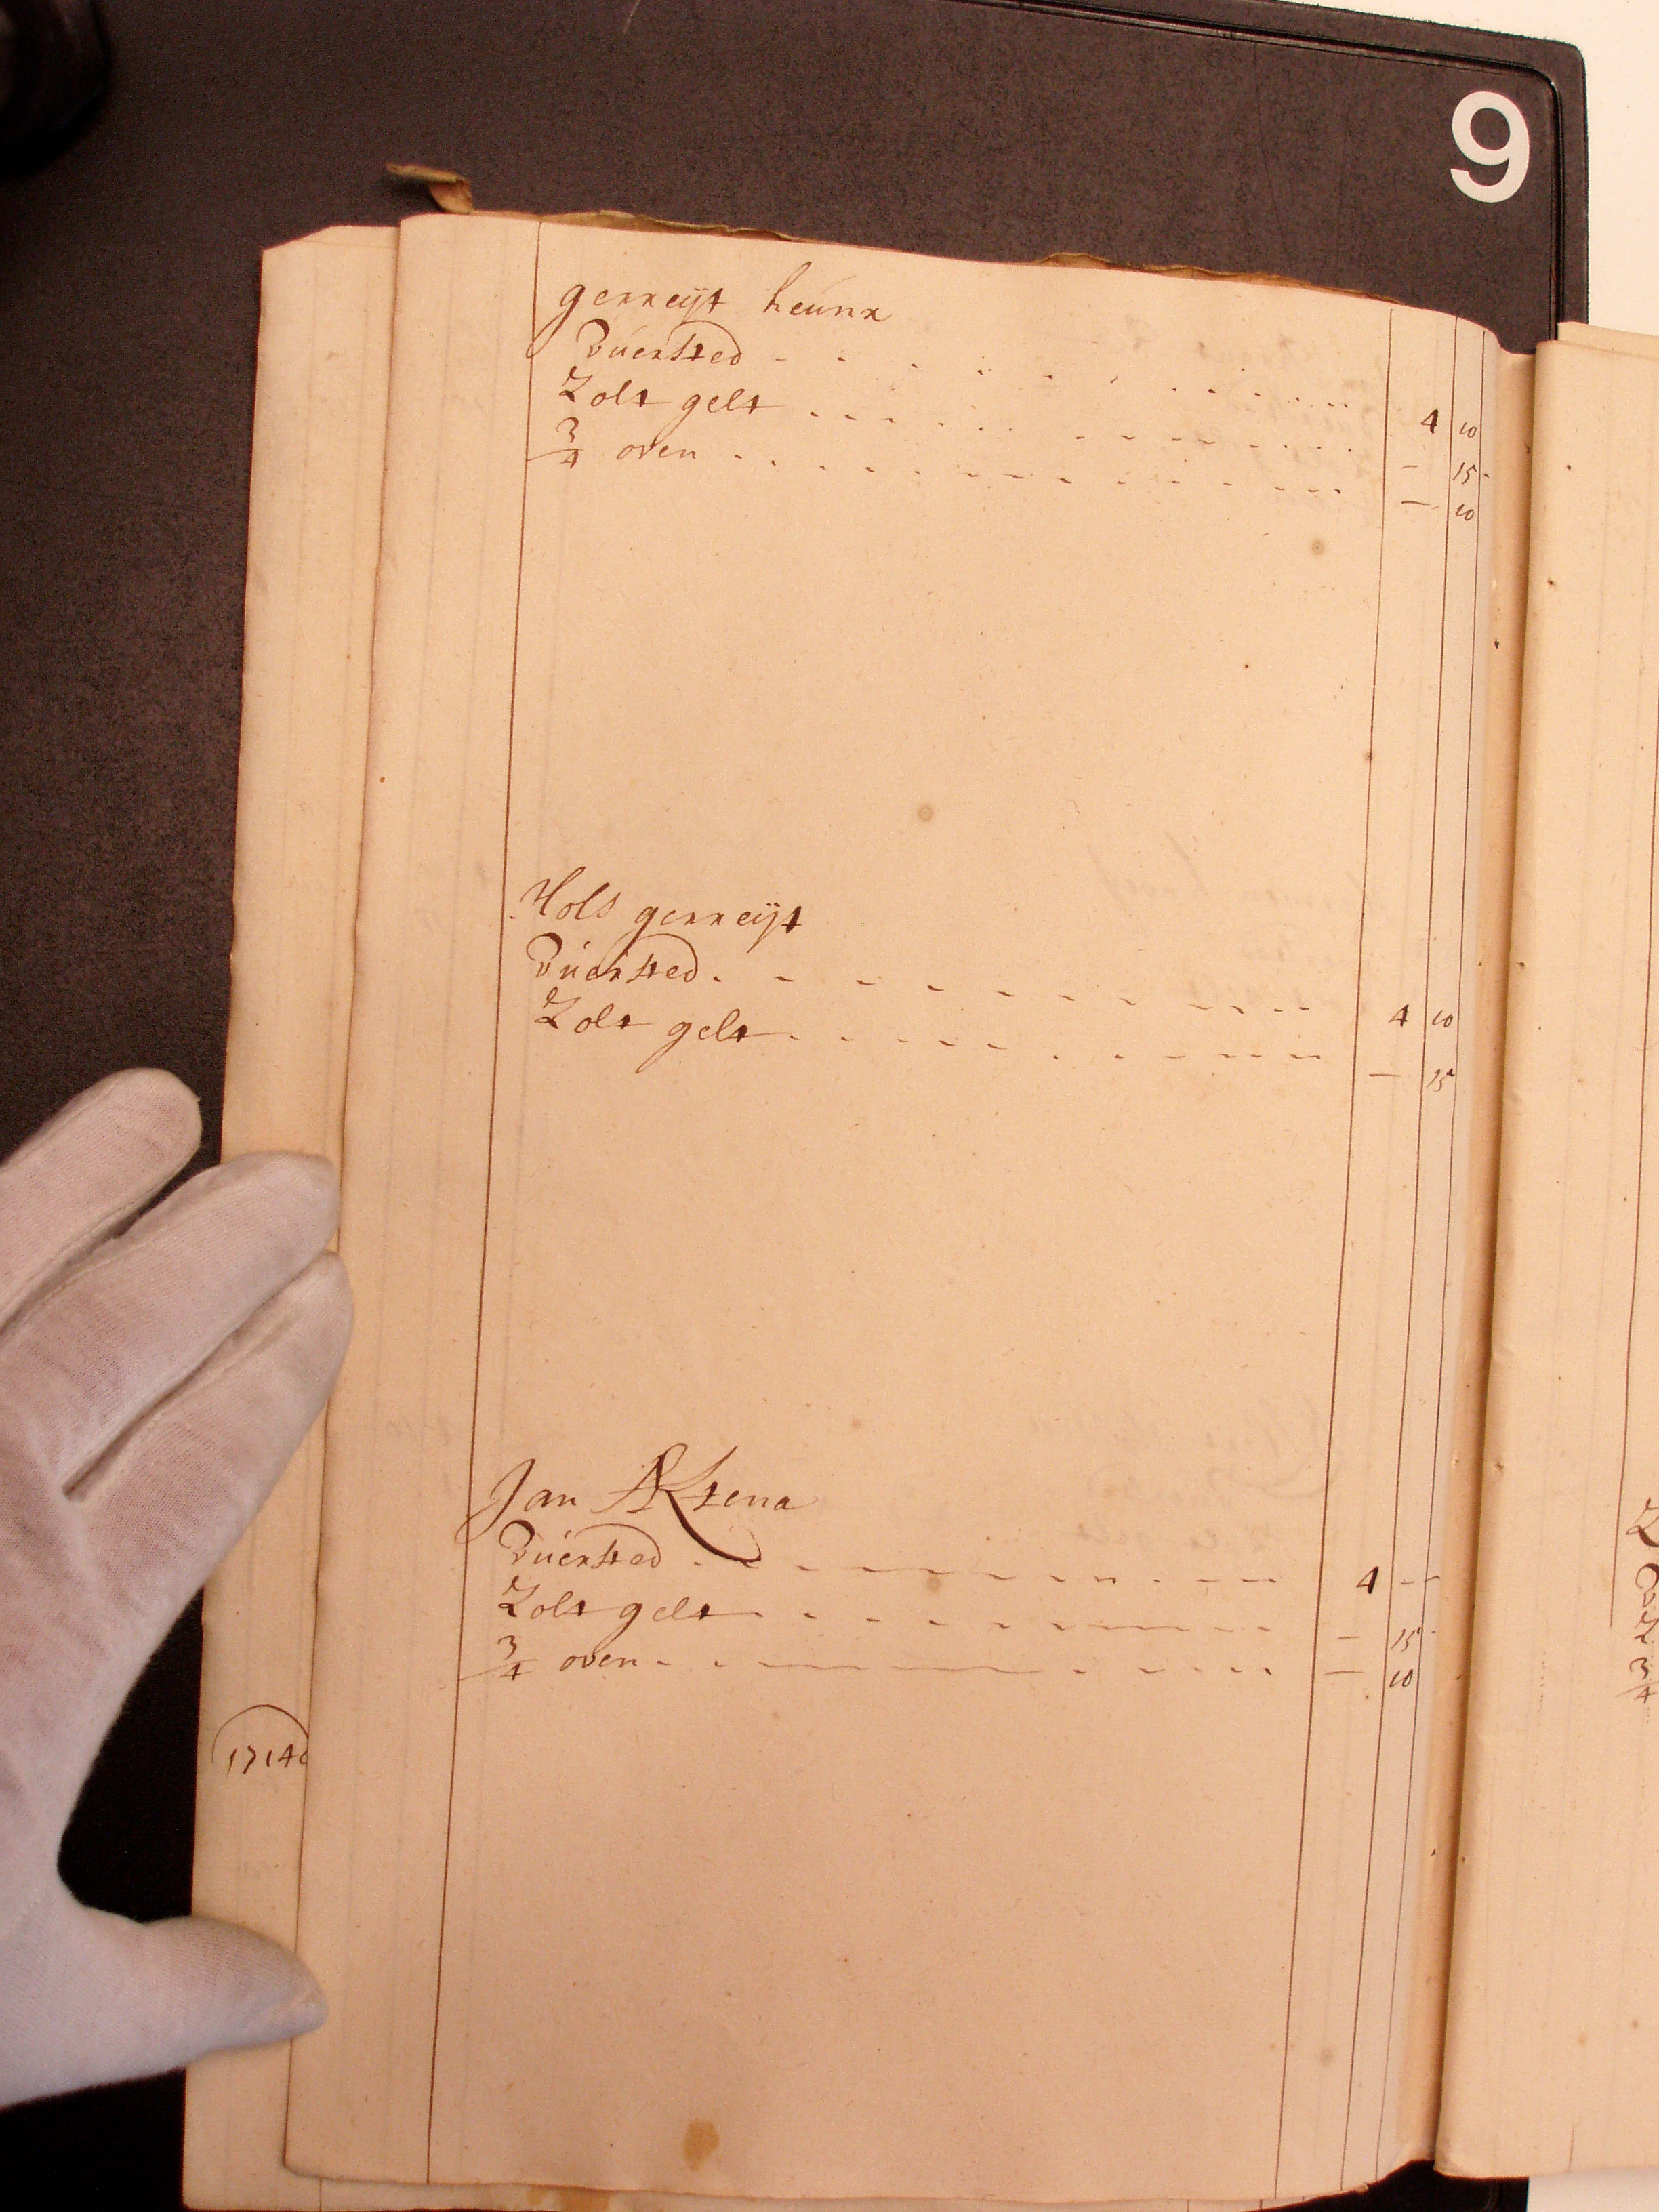 9
gerreijt heunx
Vuersted - - - - - - - - - - 4 10
Zolt gelt - - - - - - - - - - — 15
3/4 oven - - - - - - - - - - — 10
Hols gerreijt
Vuersted - - - - - - - - - - 4 10
Zolt gelt - - - - - - - - - - — 15
Jan
Vuersted - - - - - - - - - - 4 —
Zolt gelt - - - - - - - - - - — 15
3/4 oven - - - - - - - - - - — 10
1714
Z
V
Z
3/4